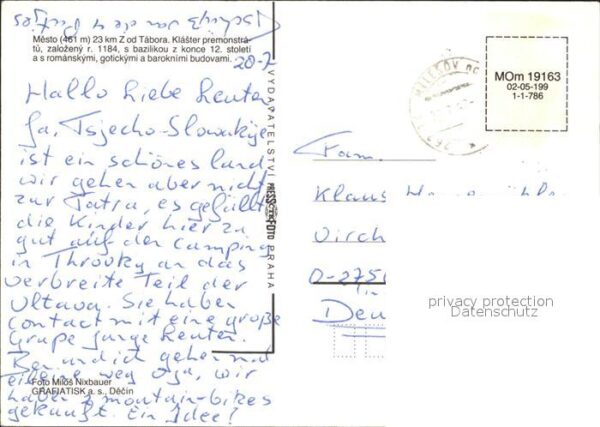 Tschüß von de 4
Město (461 m) 23 km Z od Tábora. Klášter premonstrá-
tů, založený r. 1184, s bazilikou z konce 12. století
a s románskými, gotickými a barokními budovami.
20-7
Hallo liebe Leuten
Ja, Tsjecho-Slowakije
ist ein schönes Land
wir gehen aber nicht
zur Tatra, es gefällt
die Kinder hier zu
gut auf der Camping
in an das
verbreite Teil der
Vltava. Sie haben
Contact mit eine große
Grupe junge Leuten.
Ben und ich gehen mal
weg Oja, wir
haben 2 mountain-bikes
gekauft. Ein Idee!
Foto Miloš Nixbauer
GRAFIATISK a. s., Děčín
VYDAVATELSTVÍ PRESSFOTO PRAHA
MILEVSKO
MOm 19163
02-05-199
1-1-786
Fam.
Klaus
Virch
D-275
Deu
privacy protection
Datenschutz